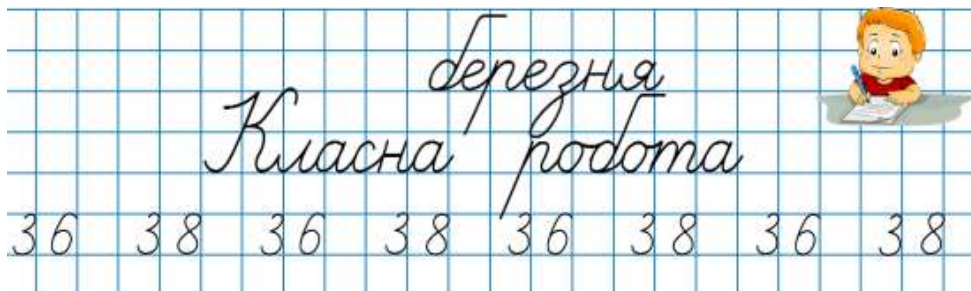 березня
Класна робота
36 38 36 38 36 38 36 38